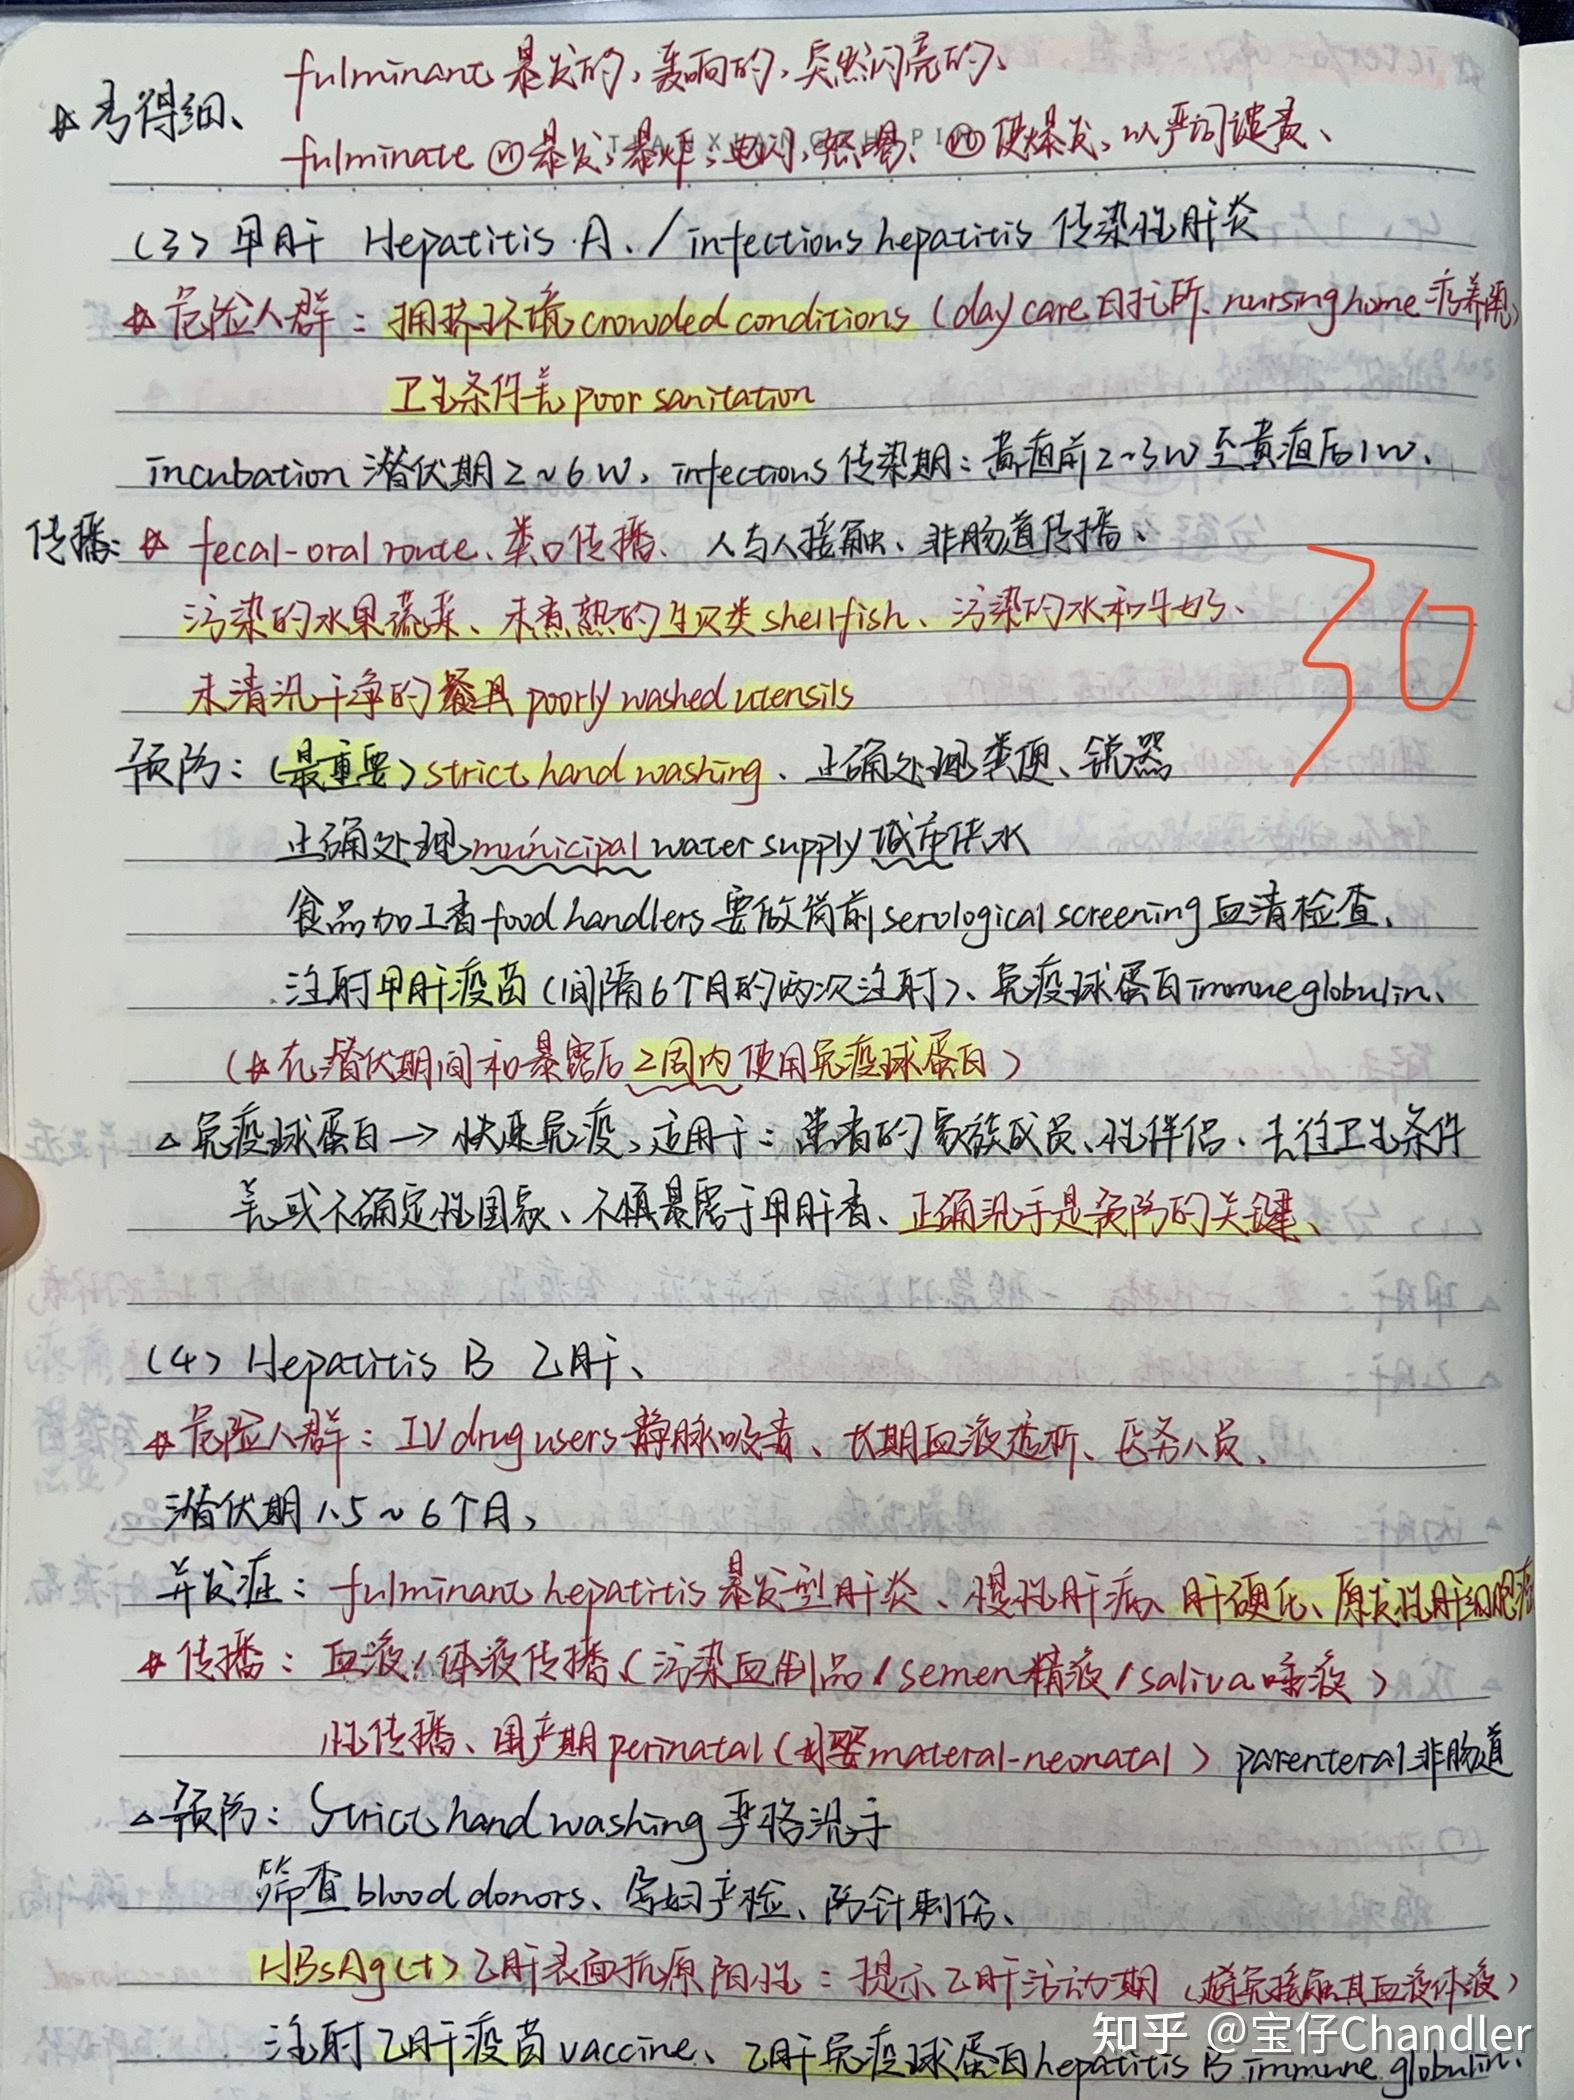 fulminant 暴发的，轰响的，突然闪亮的、
☆考得细、
fulminate ⓥi 暴发，暴炸，电闪，怒喝、ⓥt 使爆发、以严词谴责、
(3) 甲肝 Hepatitis A、/infections hepatitis 传染性肝炎
☆危险人群：拥挤环境 crowded conditions（day care 日托所、nursing home 疗养院）
卫生条件差 poor sanitation
incubation 潜伏期 2~6 W、infections 传染期：黄疸前2~3W至黄疸后1W、
传播：☆ fecal-oral route、粪口传播、人与人接触、非肠道传播、
污染的水果蔬菜、未煮熟的生贝类 shellfish、污染的水和牛奶、
30
未清洗干净的餐具 poorly washed utensils
预防：（最重要）strict hand washing、正确处理粪便、锐器
正确处理 municipal water supply 城市供水
食品加工者 food handlers 要做岗前 serological screening 血清检查、
注射甲肝疫苗（间隔6个月的两次注射）、免疫球蛋白 immune globulin、
（☆在潜伏期间和暴露后2周内使用免疫球蛋白）
△免疫球蛋白→快速免疫，适用于：患者的家族成员、性伴侣、去往卫生条件
差或不确定性国家、不慎暴露于甲肝者、正确洗手是预防的关键、
(4) Hepatitis B 乙肝、
☆危险人群：IV drug users 静脉吸毒、长期血液透析、医务人员、
潜伏期 1.5~6个月，
并发症：fulminant hepatitis 暴发型肝炎、慢性肝病、肝硬化、原发性肝细胞癌
☆传播：血液/体液传播（污染血制品/semen 精液/saliva 唾液）
性传播、围产期 perinatal（母婴 materal-neonatal）parenteral 非肠道
△预防：Strict hand washing 严格洗手
筛查 blood donors、孕妇产检、防针刺伤、
HBsAg(+) 乙肝表面抗原阳性：提示乙肝活动期（避免接触其血液体液）
注射乙肝疫苗 vaccine、乙肝免疫球蛋白 hepatitis B immune globulin、
知乎 @宝仔Chandler